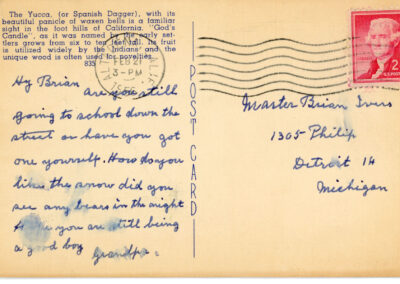 The Yucca, (or Spanish Dagger), with its
beautiful panicle of waxen bells is a familiar
sight in the foot hills of California. "God's
Candle", as it was named by the early set-
tlers grows from six to ten feet tall. Its fruit
is utilized widely by the Indians and the
unique wood is often used for novelties.
835
FEB 21
3-PM
CALIF.
2
U.S. POSTAGE
POST CARD
Hy Brian
are you still
going to school down the
street or have you got
one yourself. How do you
like the snow did you
see any bears in the night
you are still being
a good boy
Grandpa.
Master Brian Ivers
1305 Philip
Detroit 14
Michigan